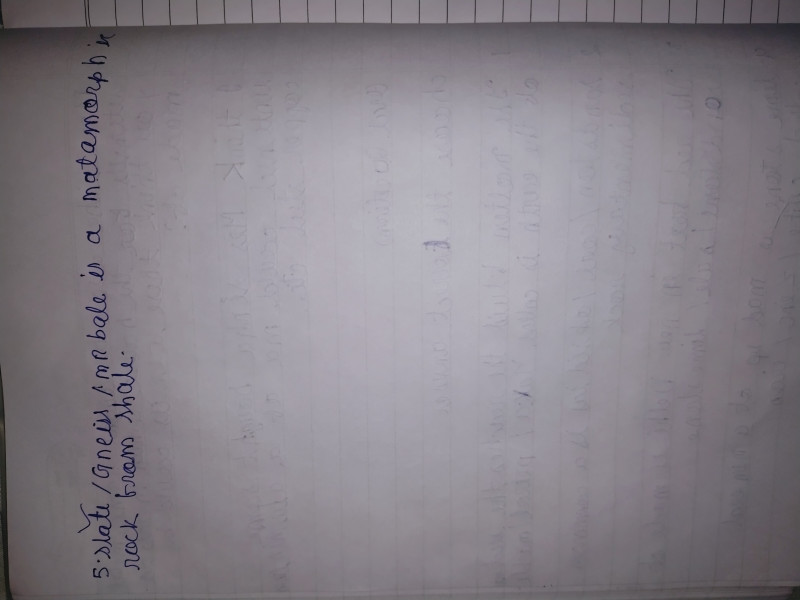 5. slate / Gneiss / mr bale is a matamorphic
rock from shale.